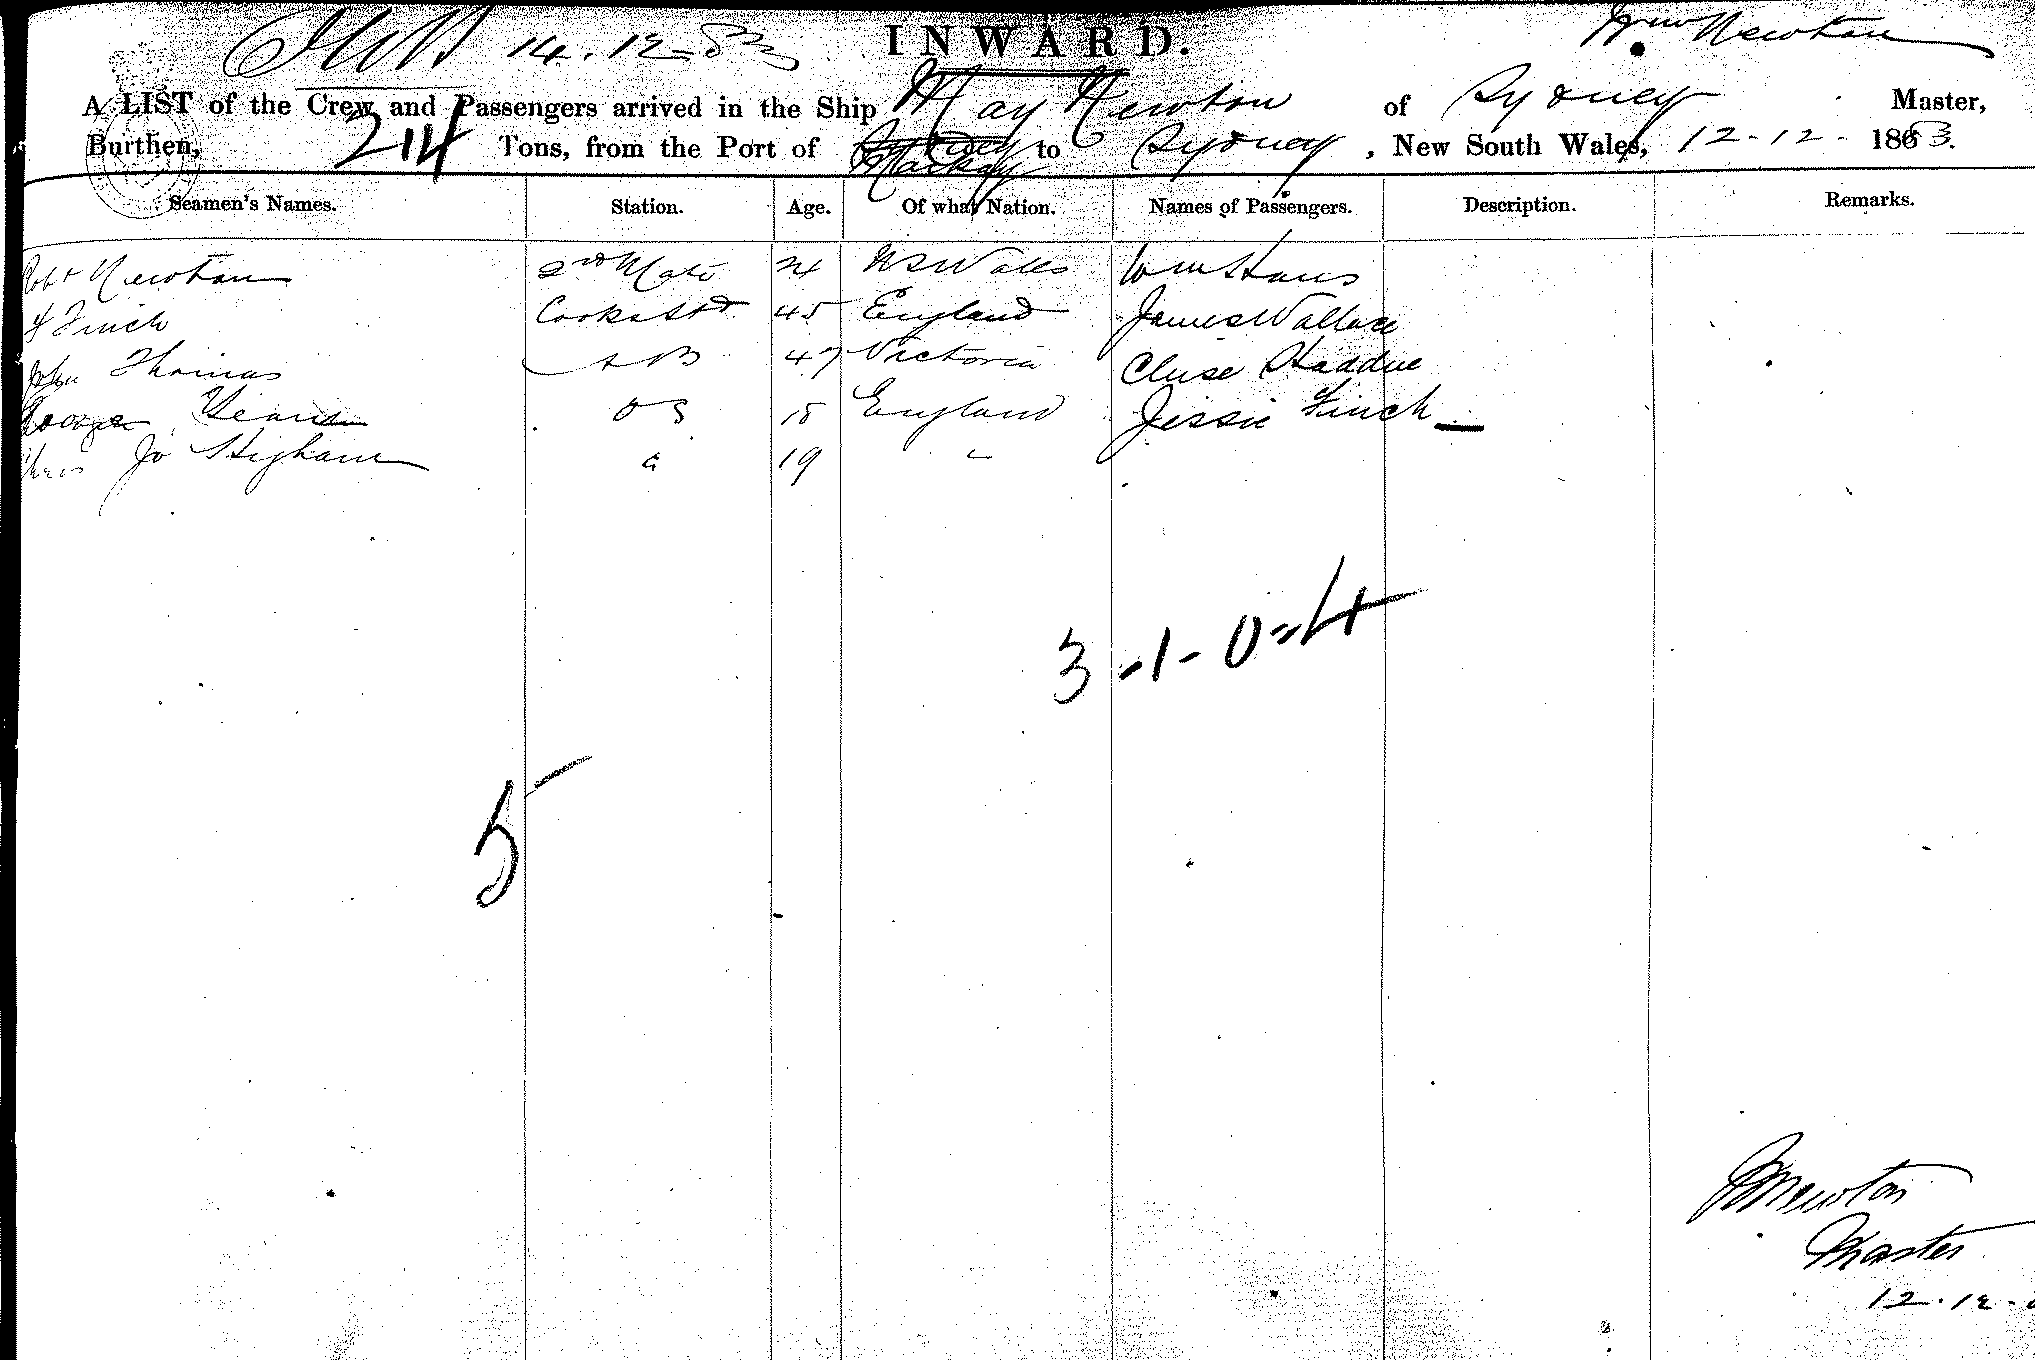 14.12-83 INWARD. Wm Newton
A LIST of the Crew and Passengers arrived in the Ship May Newton of Sydney Master,
Burthen, 214 Tons, from the Port of Mackay to Sydney, New South Wales, 12-12-1883.
Seamen's Names. Station. Age. Of what Nation. Names of Passengers. Description. Remarks.
Robt Newton 2nd Mate 24 NSWales Wm
Finch Cook & Std 45 England James Wallace
John Thomas AB 47 Victoria
George OS 18 England Jessie Finch
Jo Higham 19 "
3-1-0=4
5
Newton
Master
12.12.